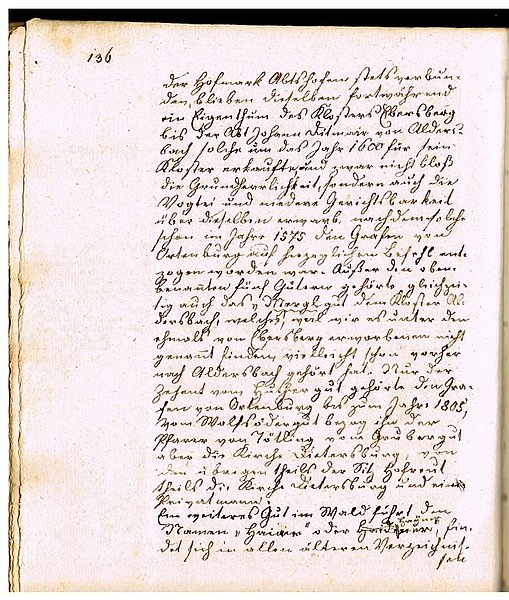 136
der Hofmark Abtshofen stets verbun-
den, blieben dieselben fortwährend
ein Eigenthum des Klosters Ebersberg
bis der Abt Johann Ditmair von Alders-
bach solche um das Jahr 1600 für sein
Kloster erkaufte, und zwar nicht bloß
die Grundherrlichkeit, sondern auch die
Vogtei und niedere Gerichtsbarkeit
über dieselben erwarb, nachdem solche
schon im Jahre 1575 den Grafen von
Ortenburg auf herzoglichen Befehl ent-
zogen worden war. Außer den oben-
benannten fünf Gütern gehörte gleichzei-
tig auch das Mergl gut dem Kloster Al-
dersbach, welches, weil wir es unter den
ehmals von Ebersberg erworbenen nicht
genannt finden, vielleicht schon vorher
nach Aldersbach gehört hat. Nur der
Zehent vom gut gehörte den Gra-
fen von Ortenburg bis zum Jahre 1805,
vom Wolfsödergut bezog ihn der
Pfarrer von Tötling vom Grubergut
aber die Kirche Dietersburg, von
den übrigen theils der Sitz Hohreut
theils die Kirche Dietersburg und ein
Privatmann.
Ein weiteres Gut im Wald führt den
Namen „Hainer" oder fin-
det sich in allen älteren Verzeichnis-
sen